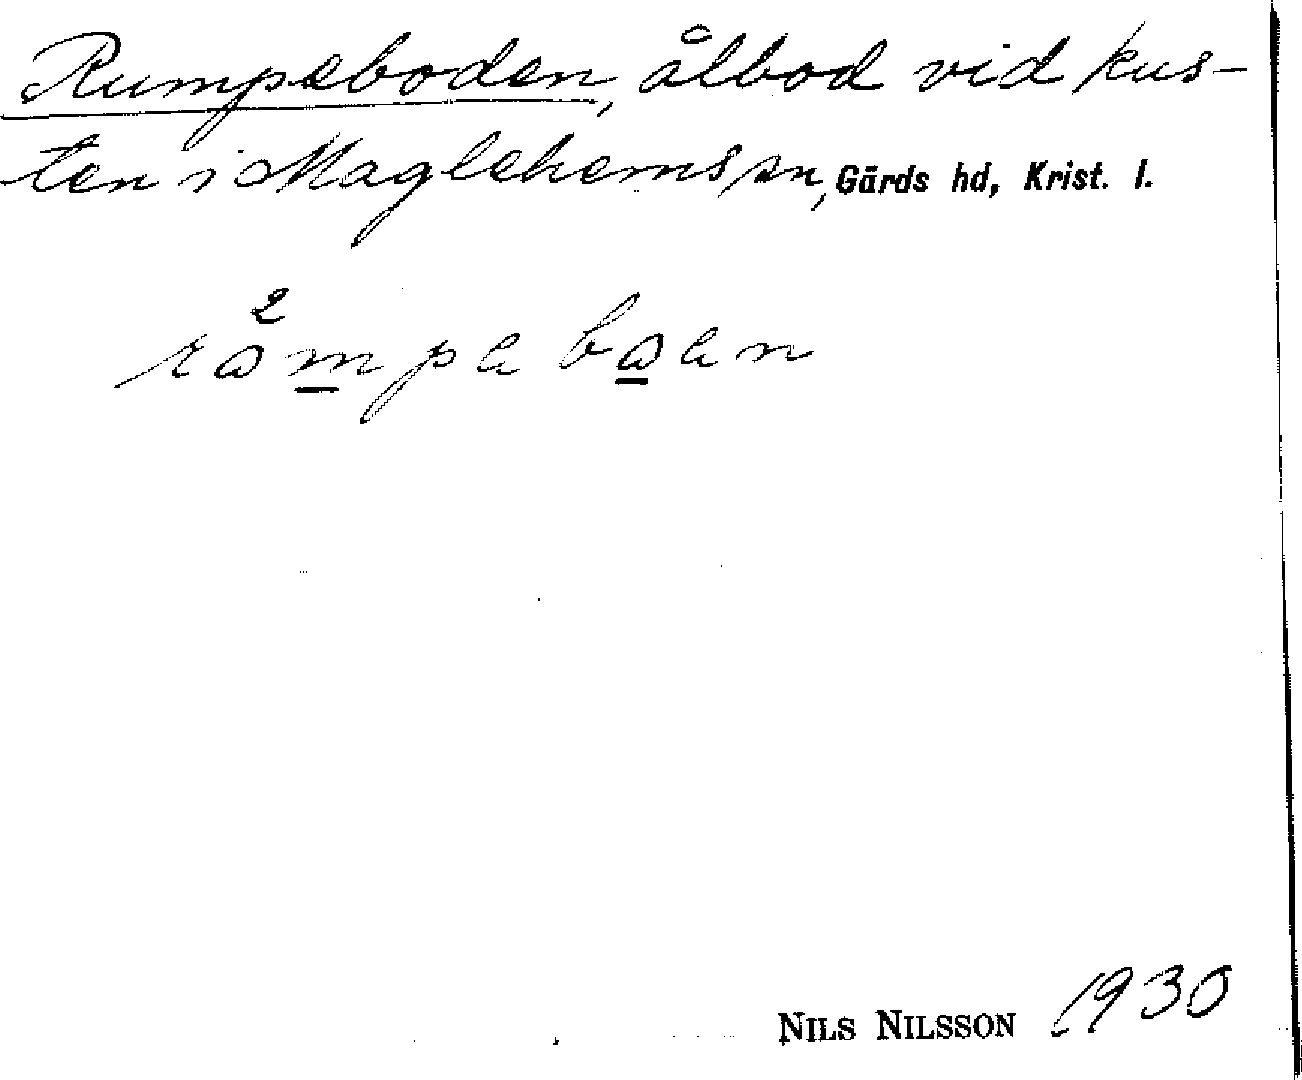 Rumpeboden, ålbod vid kus-
ten i Maglehems sn, Gärds hd, Krist. l.
2
råmpaboan
NILS NILSSON 1930